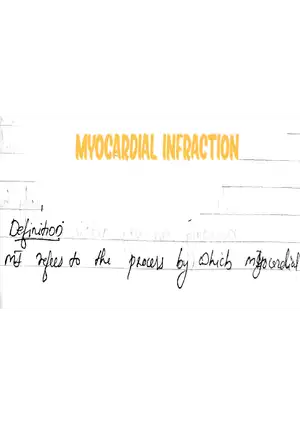 MYOCARDIAL INFRACTION
Definition:
MI refees to the process by which myocardial